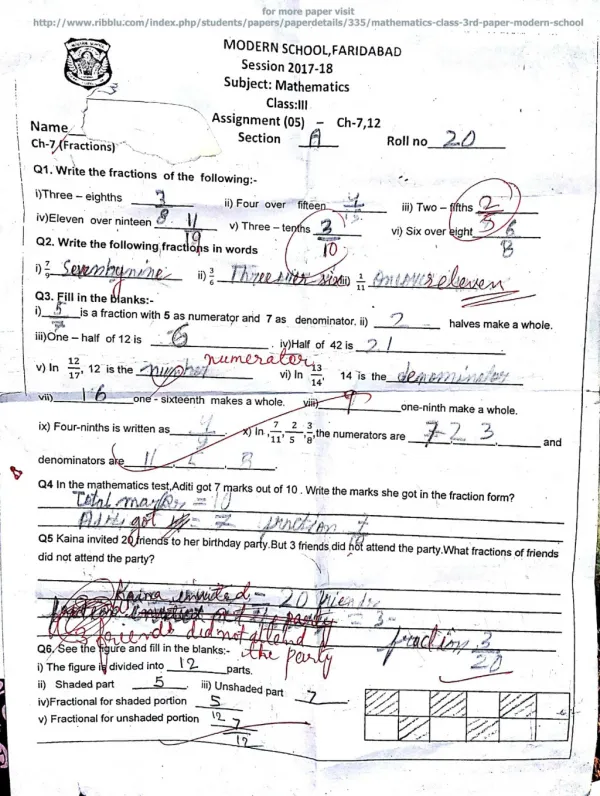 for more paper visit
http://www.ribblu.com/index.php/students/papers/paperdetails/335/mathematics-class-3rd-paper-modern-school
MODERN SCHOOL,FARIDABAD
Session 2017-18
Subject: Mathematics
Class:III
Assignment (05) – Ch-7,12
Name
Section A Roll no 20
Ch-7 (Fractions)
Q1. Write the fractions of the following:-
i)Three – eighths 3/8 ii) Four over fifteen 4/15 iii) Two – fifths 2/5
iv)Eleven over ninteen 11/19 v) Three – tenths 3/10 vi) Six over eight 6/8
Q2. Write the following fractions in words
i) 7/9 Seven by nine ii) 3/6 Three over six iii) 1/11 One over eleven
Q3. Fill in the blanks:-
i) 5/7 is a fraction with 5 as numerator and 7 as denominator. ii) 2 halves make a whole.
iii)One – half of 12 is 6 . iv)Half of 42 is 21
numerator
v) In 12/17, 12 is the number vi) In 13/14, 14 is the denominator
vii) 16 one - sixteenth makes a whole. viii) 9 one-ninth make a whole.
ix) Four-ninths is written as 4/9 x) In 7/11, 2/5, 3/8, the numerators are 7 2 3, and
denominators are 11, 5, 8.
Q4 In the mathematics test,Aditi got 7 marks out of 10 . Write the marks she got in the fraction form?
Total marks = 10
Aditi got = 7 fraction 7/10
Q5 Kaina invited 20 friends to her birthday party.But 3 friends did not attend the party.What fractions of friends
did not attend the party?
Kaina invited = 20 friends
= 3
friends did not attend the party fraction 3/20
Q6. See the figure and fill in the blanks:-
i) The figure is divided into 12 parts.
ii) Shaded part 5 . iii) Unshaded part 7 .
iv)Fractional for shaded portion 5/12
v) Fractional for unshaded portion 7/12